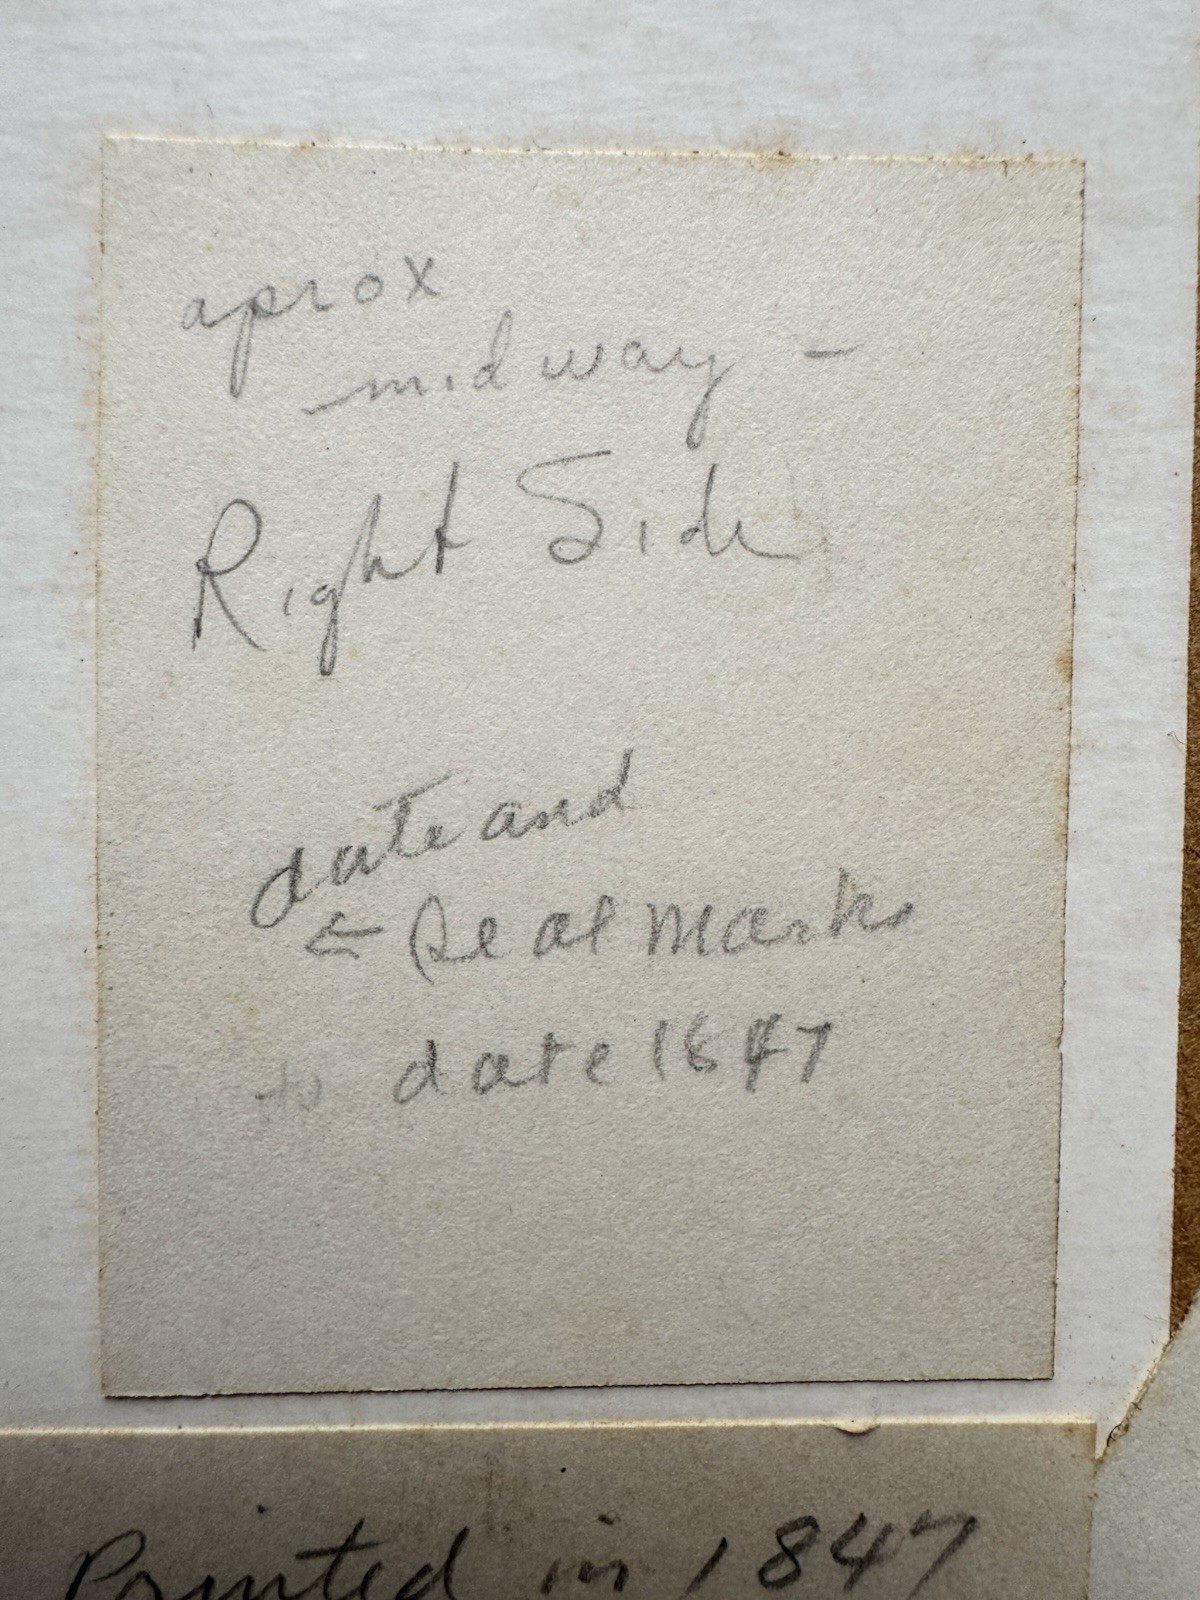 aprox
midway -
Right Side
date and
← Seal Marks
to date 1847
Painted in 1847